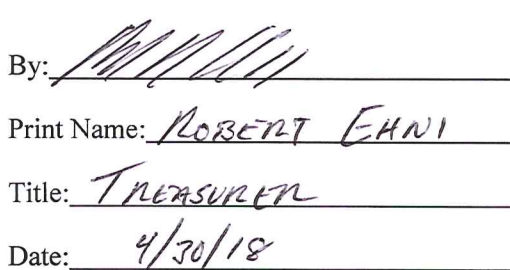 By:
Print Name: ROBERT EHNI
Title: TREASURER
Date: 4/30/18